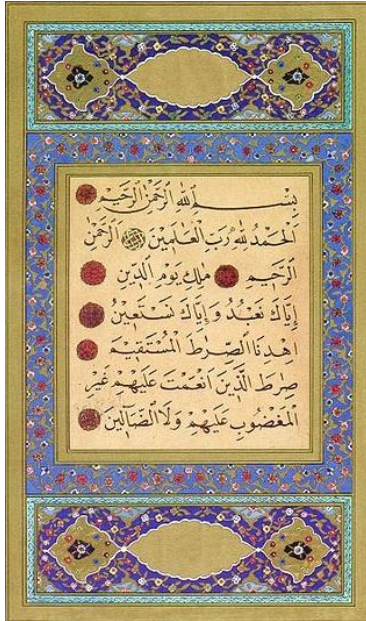 بِسْمِ اللهِ الرَّحْمٰنِ الرَّحِيمِ
اَلْحَمْدُ لِلهِ رَبِّ الْعَالَمِينَ الرَّحْمٰنِ
الرَّحِيمِ مَلِكِ يَوْمِ الدِّينِ
إِيَّاكَ نَعْبُدُ وَإِيَّاكَ نَسْتَعِينُ
اِهْدِنَا الصِّرَطَ الْمُسْتَقِيمَ
صِرَطَ الَّذِينَ اَنْعَمْتَ عَلَيْهِمْ غَيْرِ
الْمَغْضُوبِ عَلَيْهِمْ وَلَا الضَّالِّينَ